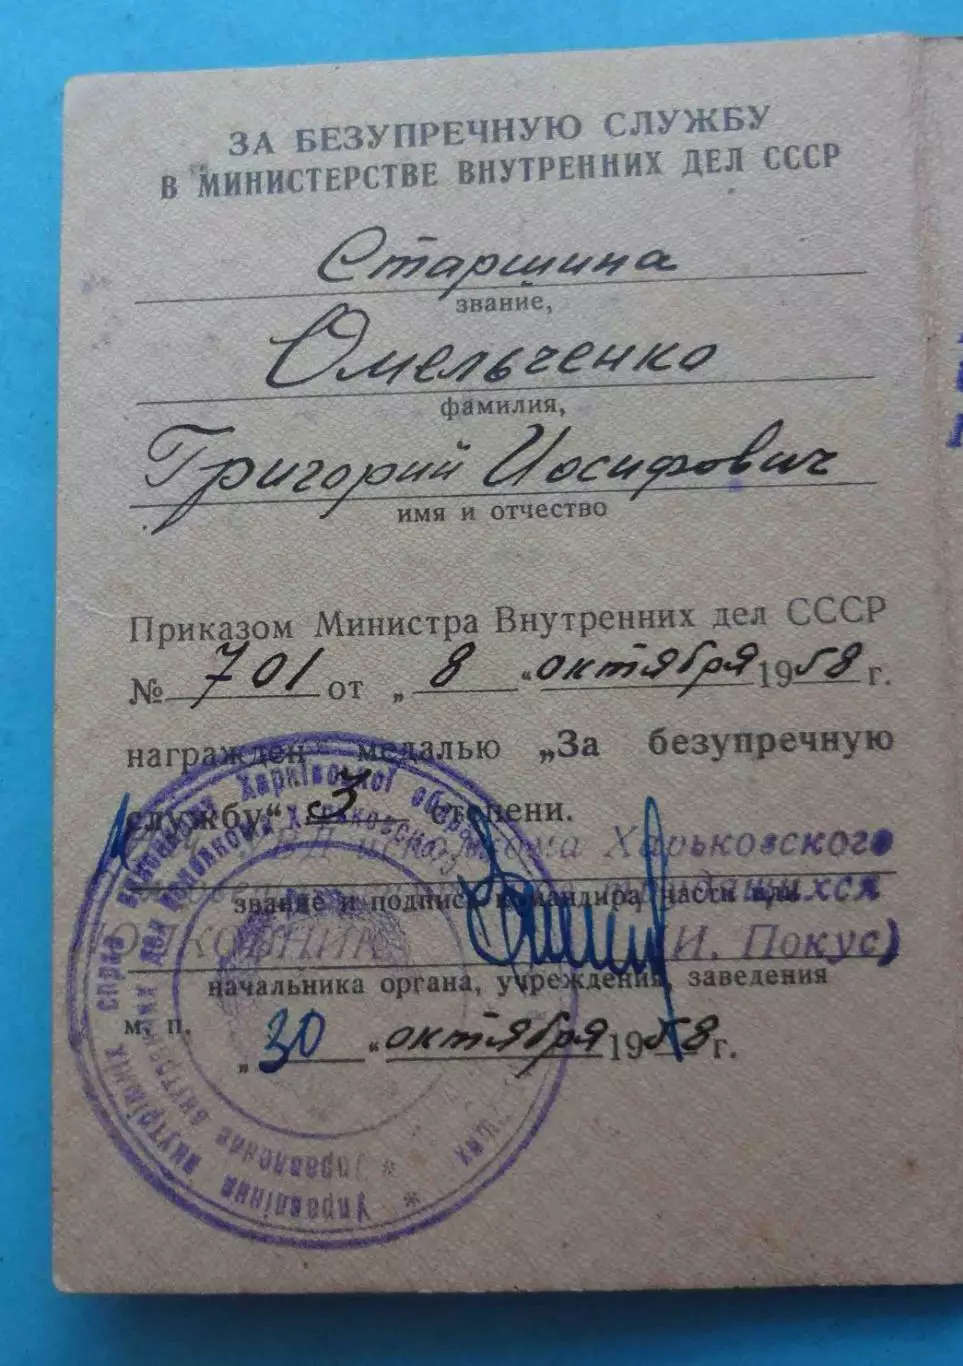 ЗА БЕЗУПРЕЧНУЮ СЛУЖБУ
В МИНИСТЕРСТВЕ ВНУТРЕННИХ ДЕЛ СССР
Старшина
звание,
Омельченко
фамилия,
Григорий Иосифович
имя и отчество
Приказом Министра Внутренних дел СССР
№ 701 от „ 8 “ октября 1958 г.
награжден медалью „За безупречную
службу“ 3 степени.
Харьковского
звание и подпись командира части или
трудящихся
(И. Покус)
начальника органа, учреждения, заведения
м. п.
„ 30 “ октября 1958 г.
Управління внутрішніх справ виконкому Харківської обласної
Управление внутренних дел исполкома Харьковского